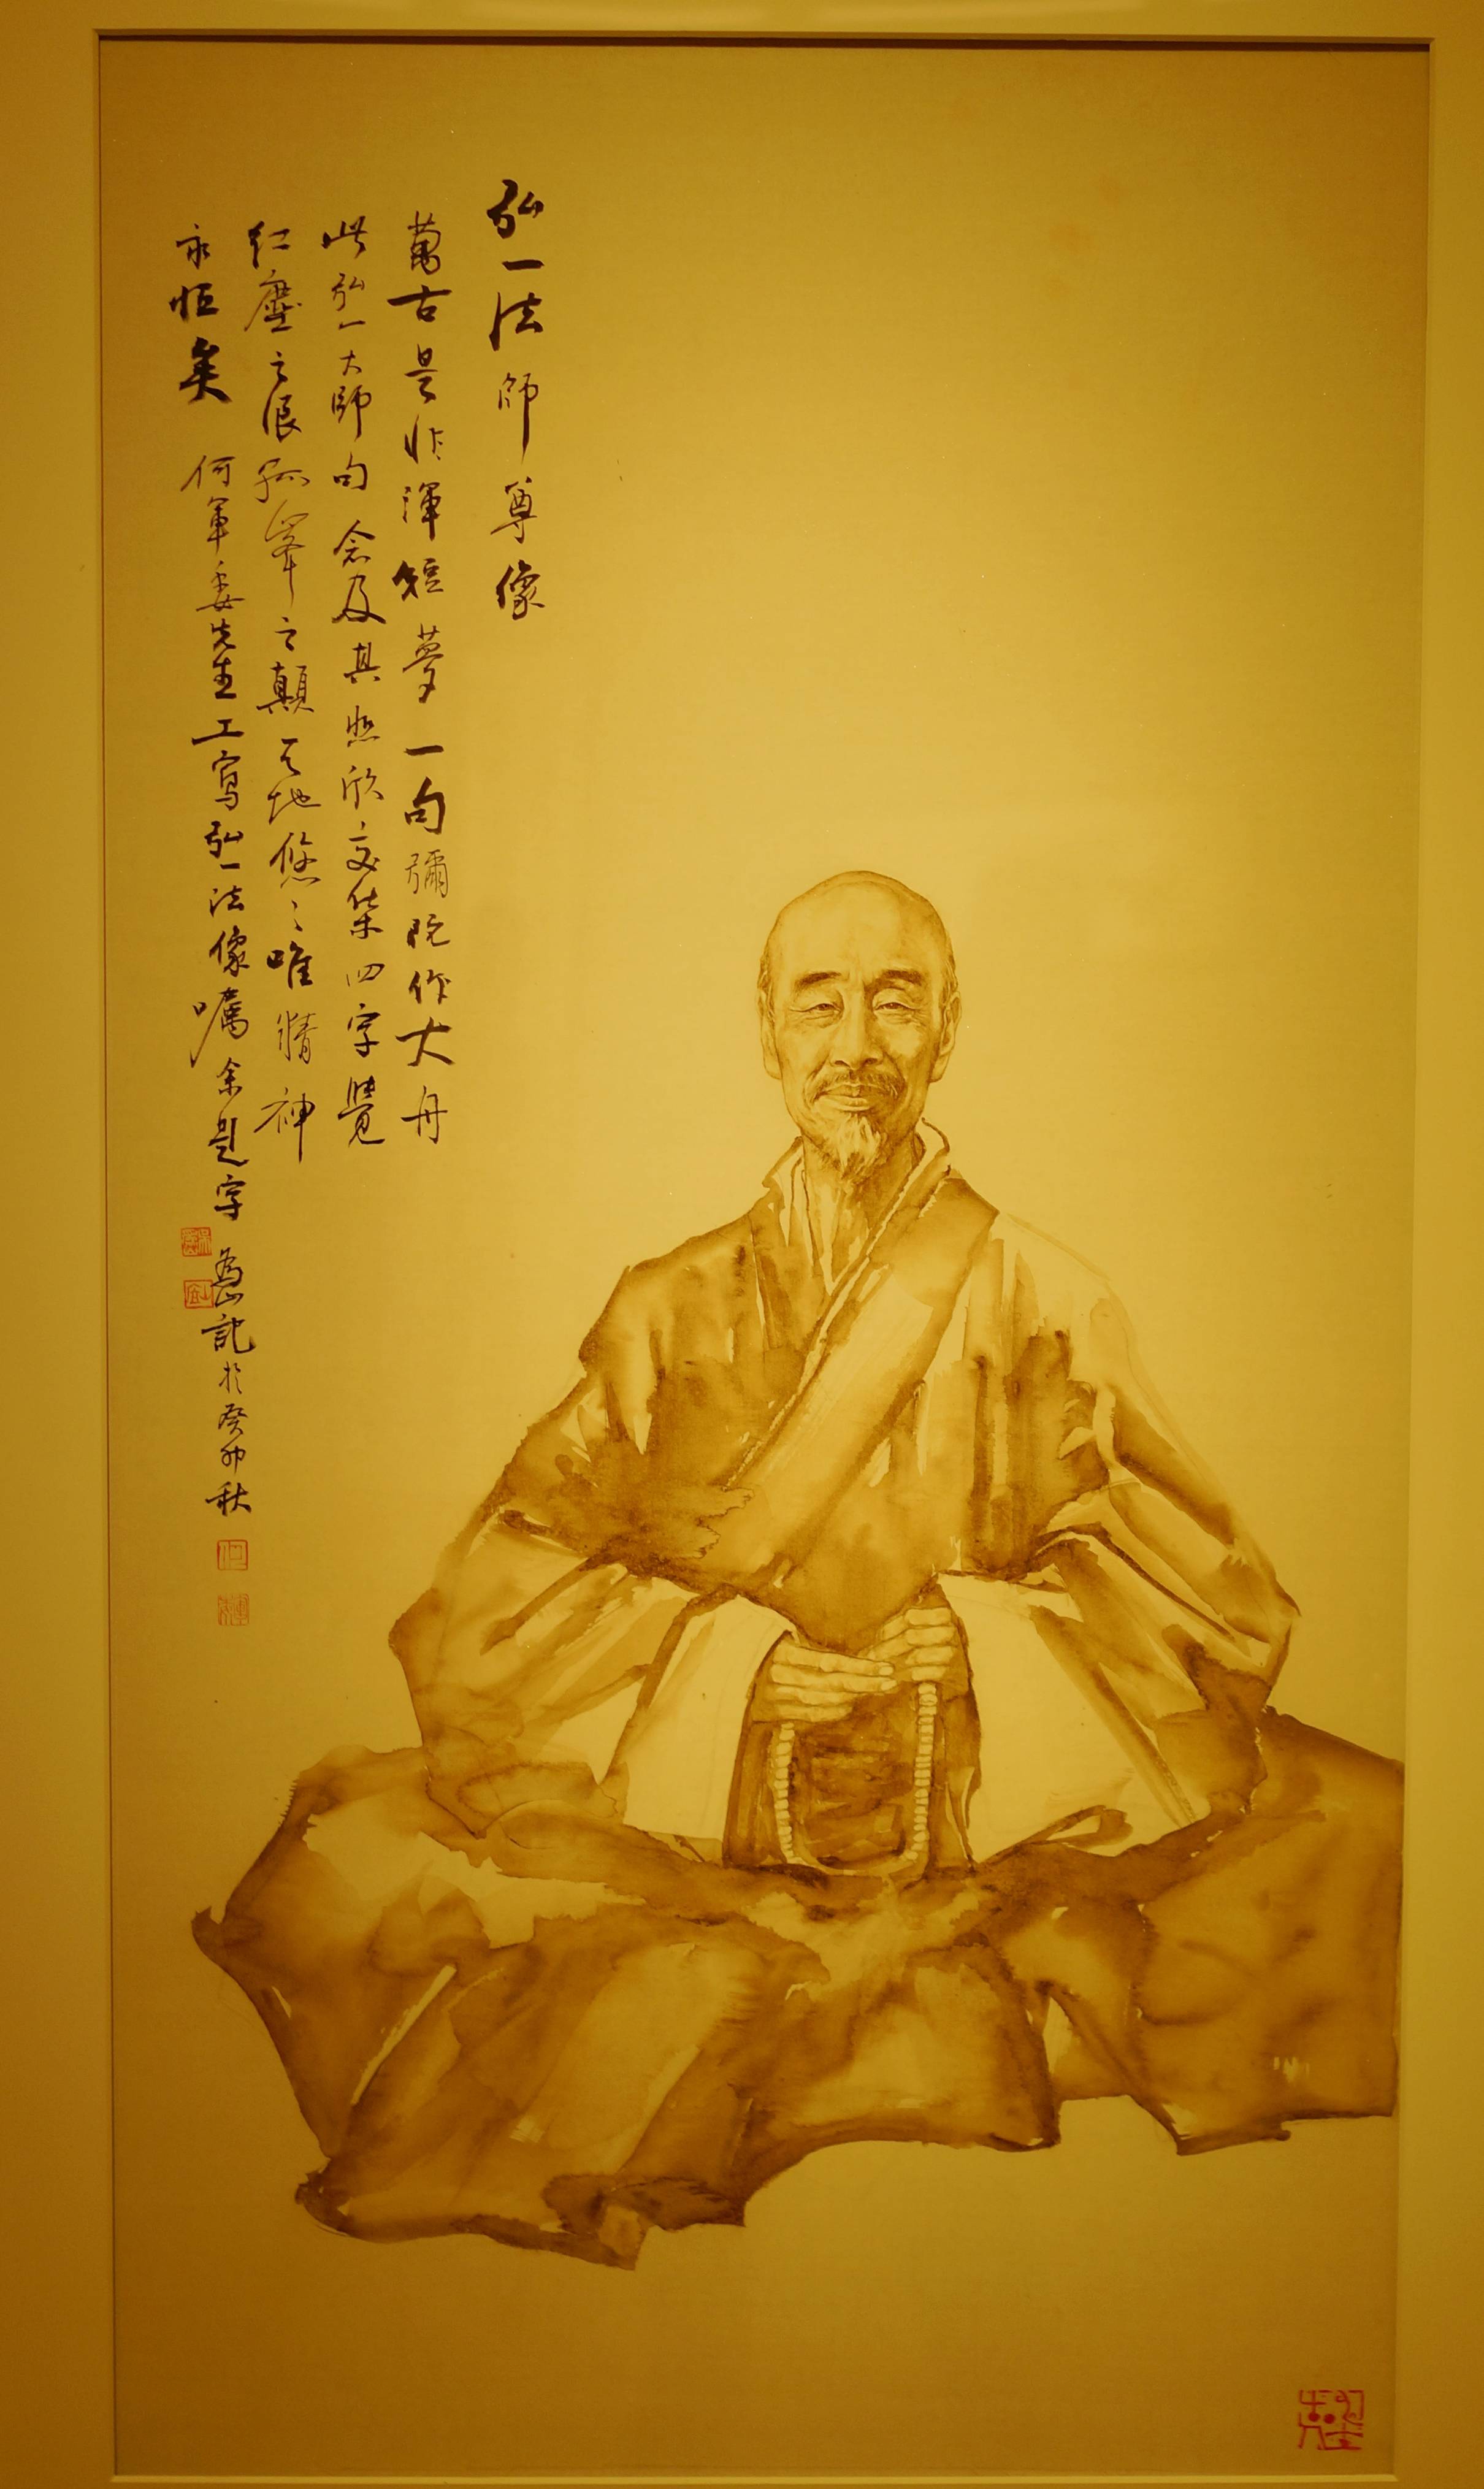 弘一法師尊像
萬古是非渾短夢一句彌陀作大舟
此弘一大師句念及其悲欣交集四字覺
紅塵之浪孤峯之顛天地悠悠唯精神
永恒矣 何軍委先生工寫弘一法像囑余題字 為山記於癸卯秋